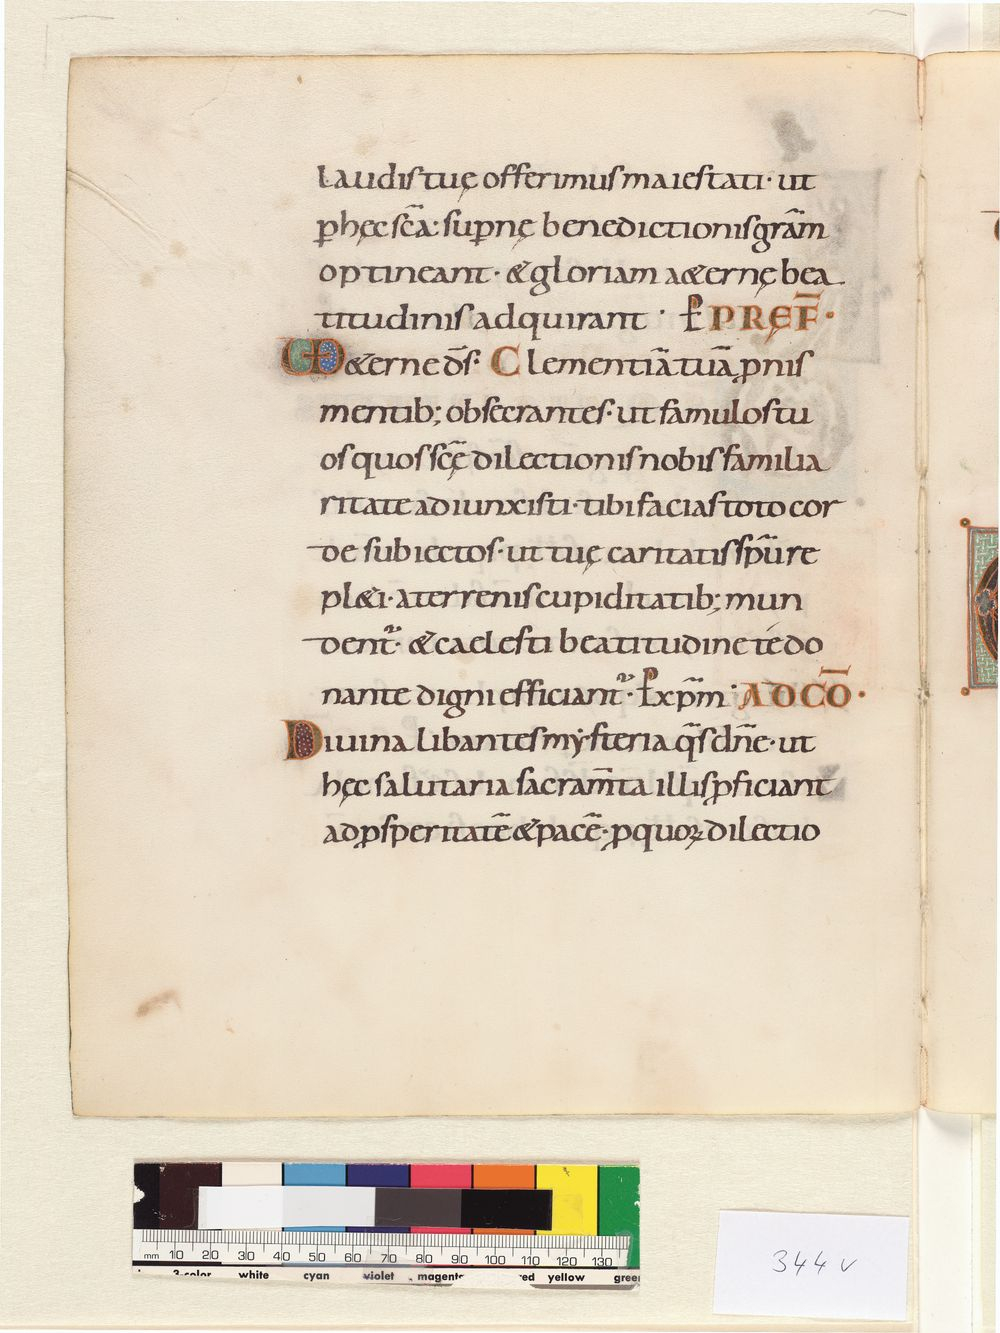 laudis tuę offerimus maiestati· ut
ꝑhęc sc̄a: suꝑnę benedictionis gr̄am
optineant· & gloriam a&ernę bea
titudinis adquirant· ꝑ PRĘF̄·
U&erne d̄s· Clementiā tuā ꝓnis
mentib; obsecrantes· ut famulos tu
os quos sc̄ę dilectionis nobis familia
ritate adiunxisti· tibi facias toto cor
de subiectos· ut tuę caritatis sp̄u re
pl&i· a terrenis cupiditatib; mun
dent᷑· & caelesti beatitudine te do
nante digni efficiant᷑· ꝑ xp̄m· AD CŌ·
Diuina libantes mẏsteria q̄s dn̄e· ut
hęc salutaria sacram̄ta illis ꝓficiant
ad ꝓsperitatē & pacē· ꝓ quoꝝ dilectio
mm 10 20 30 40 50 60 70 80 90 100 110 120 130
3-color white cyan violet magenta red yellow green
344 v